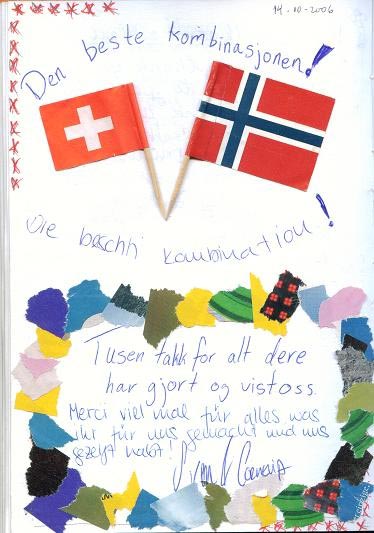 14.10-2006
Den beste kombinasjonen!
Die beschti kombination!
Tusen takk for alt dere
har gjort og vist oss.
Merci viel mal für alles was
ihr für uns gemacht und uns
gezeigt habt!